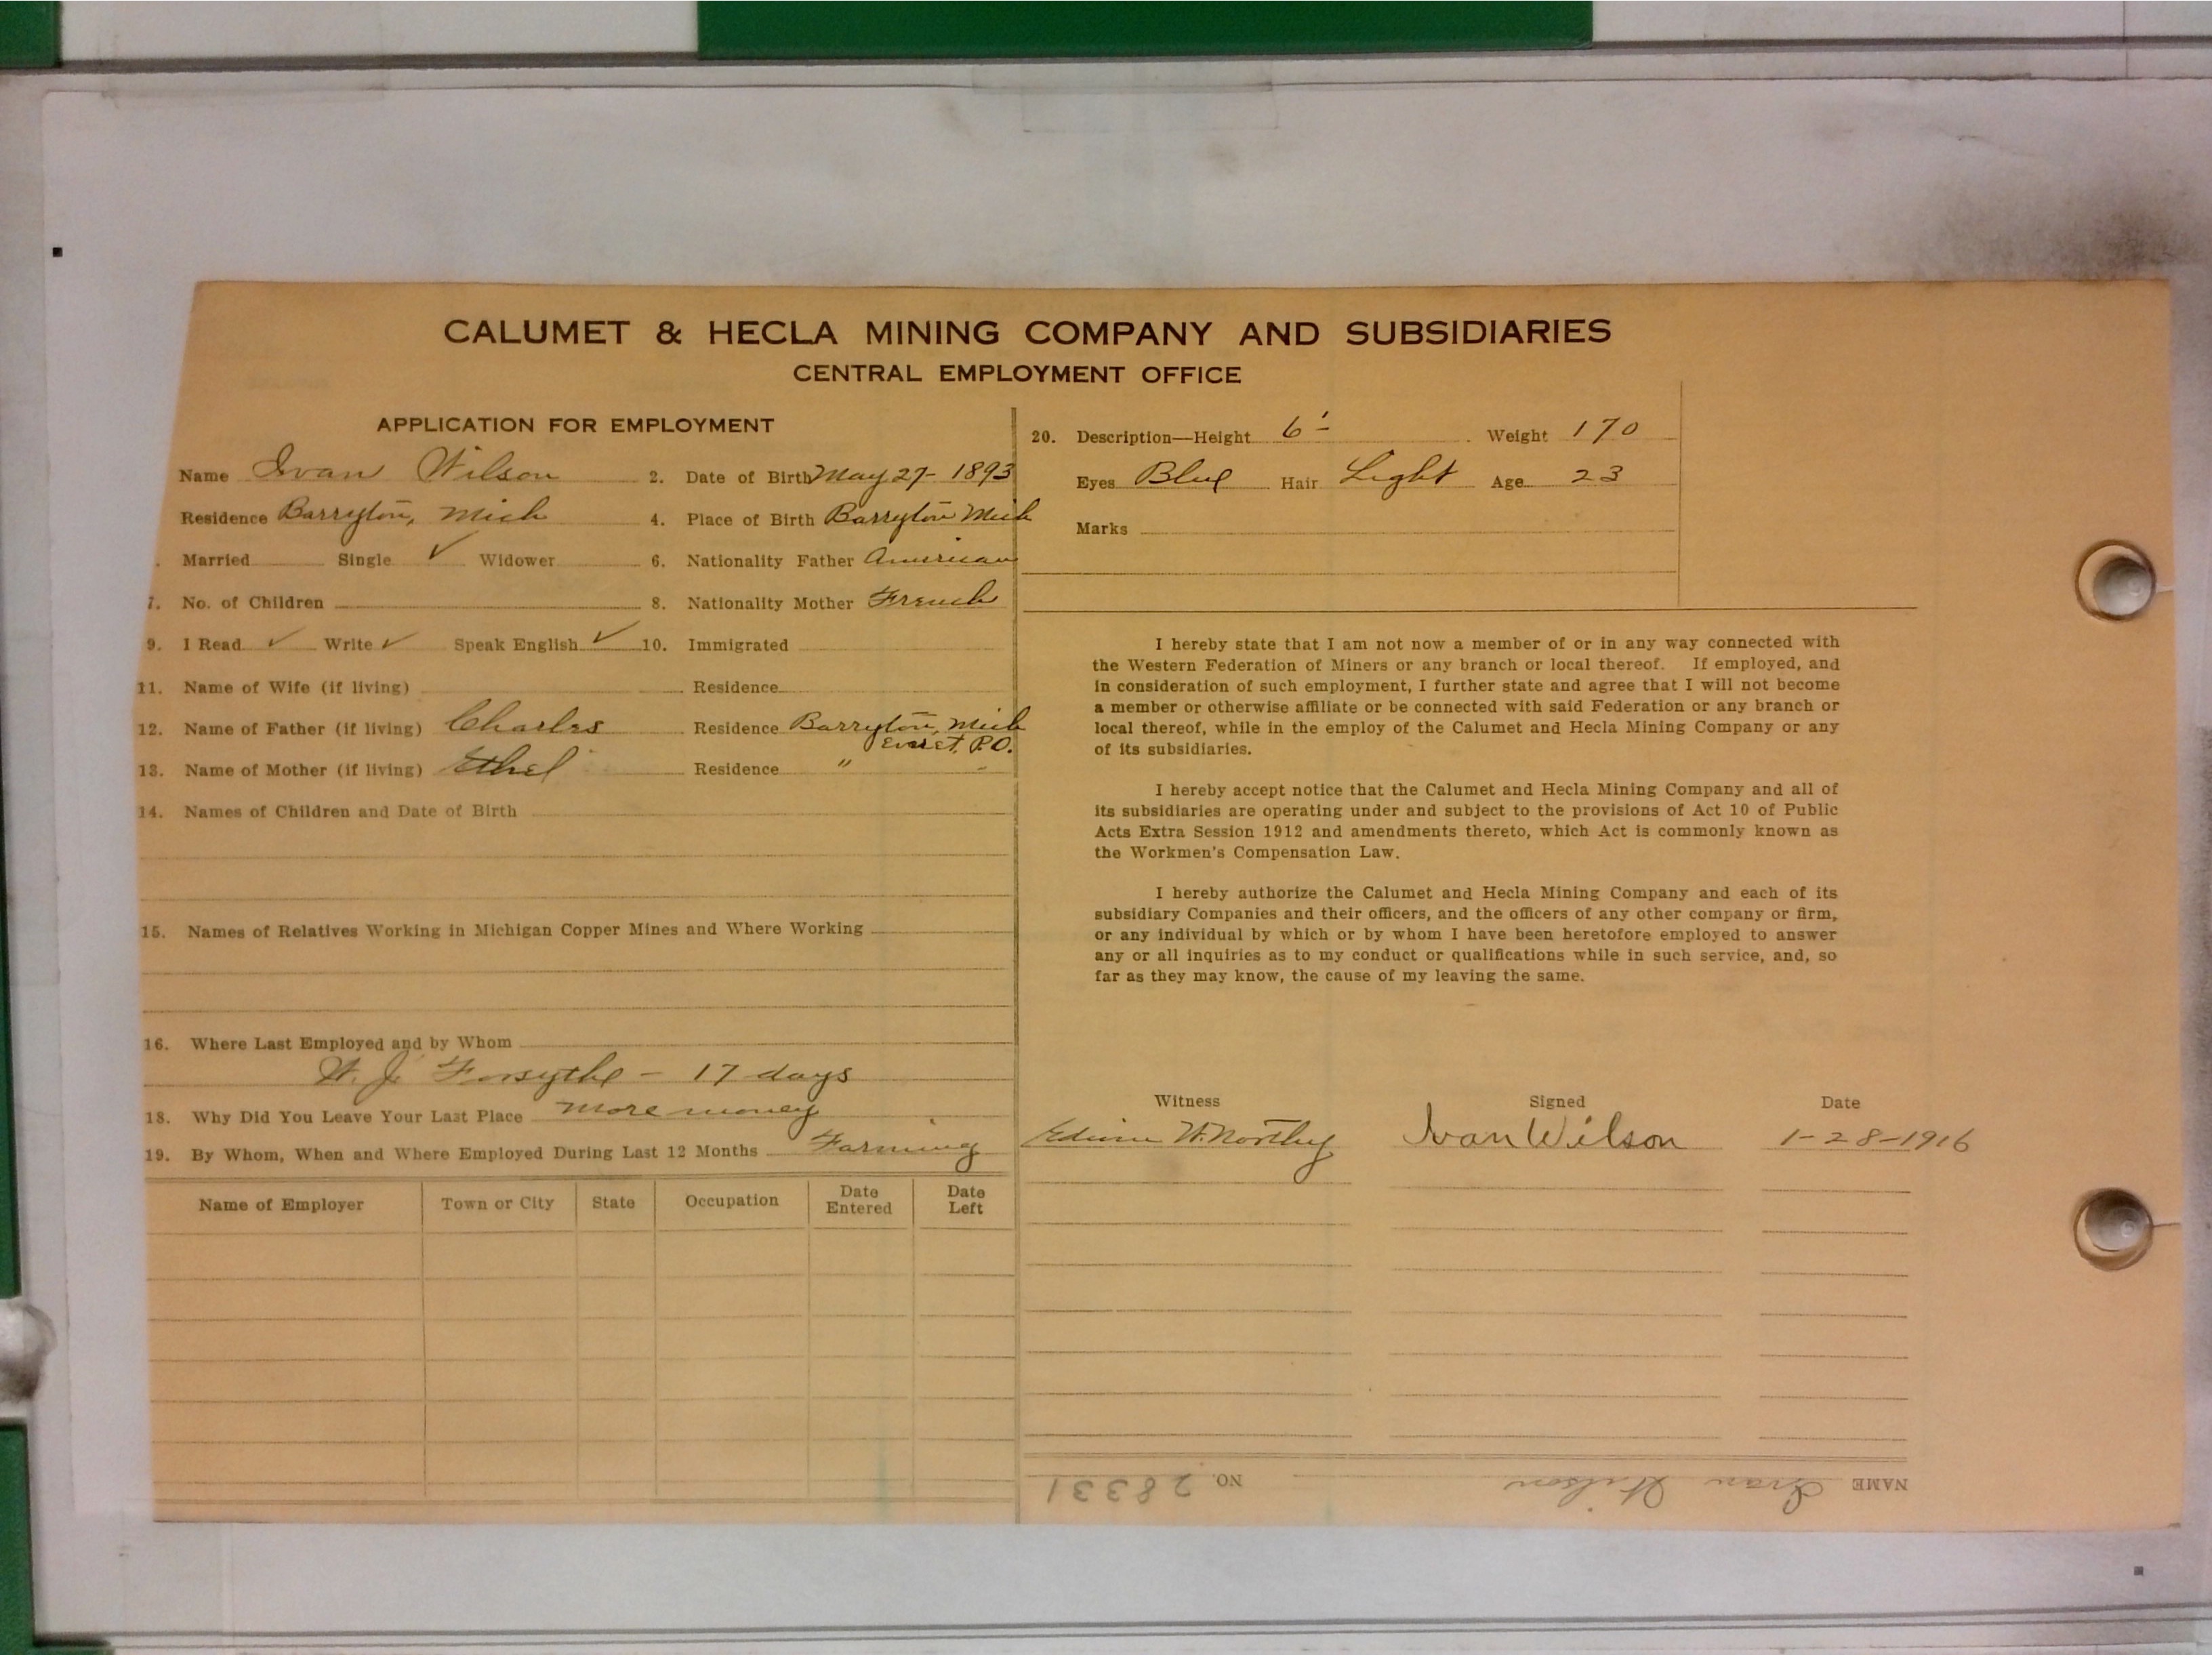 CALUMET & HECLA MINING COMPANY AND SUBSIDIARIES
CENTRAL EMPLOYMENT OFFICE
APPLICATION FOR EMPLOYMENT
Name Ivan Wilson 2. Date of Birth May 27- 1893
Residence Barryton, Mich 4. Place of Birth Barryton Mich
. Married Single ✓ Widower 6. Nationality Father American
7. No. of Children 8. Nationality Mother French
9. I Read ✓ Write ✓ Speak English ✓ 10. Immigrated
11. Name of Wife (if living) Residence
12. Name of Father (if living) Charles Residence Barryton, Mich
P.O.
13. Name of Mother (if living) Ethel Residence "
14. Names of Children and Date of Birth
15. Names of Relatives Working in Michigan Copper Mines and Where Working
16. Where Last Employed and by Whom
W. J. Forsythe - 17 days
18. Why Did You Leave Your Last Place more money
19. By Whom, When and Where Employed During Last 12 Months Farming
Name of Employer Town or City State Occupation Date Entered Date Left
20. Description—Height 6' - Weight 170
Eyes Blue Hair Light Age 23
Marks
I hereby state that I am not now a member of or in any way connected with
the Western Federation of Miners or any branch or local thereof. If employed, and
in consideration of such employment, I further state and agree that I will not become
a member or otherwise affiliate or be connected with said Federation or any branch or
local thereof, while in the employ of the Calumet and Hecla Mining Company or any
of its subsidiaries.
I hereby accept notice that the Calumet and Hecla Mining Company and all of
its subsidiaries are operating under and subject to the provisions of Act 10 of Public
Acts Extra Session 1912 and amendments thereto, which Act is commonly known as
the Workmen's Compensation Law.
I hereby authorize the Calumet and Hecla Mining Company and each of its
subsidiary Companies and their officers, and the officers of any other company or firm,
or any individual by which or by whom I have been heretofore employed to answer
any or all inquiries as to my conduct or qualifications while in such service, and, so
far as they may know, the cause of my leaving the same.
Witness Signed Date
Edwin W. Northey Ivan Wilson 1-28-1916
NAME Ivan Wilson NO. 28331